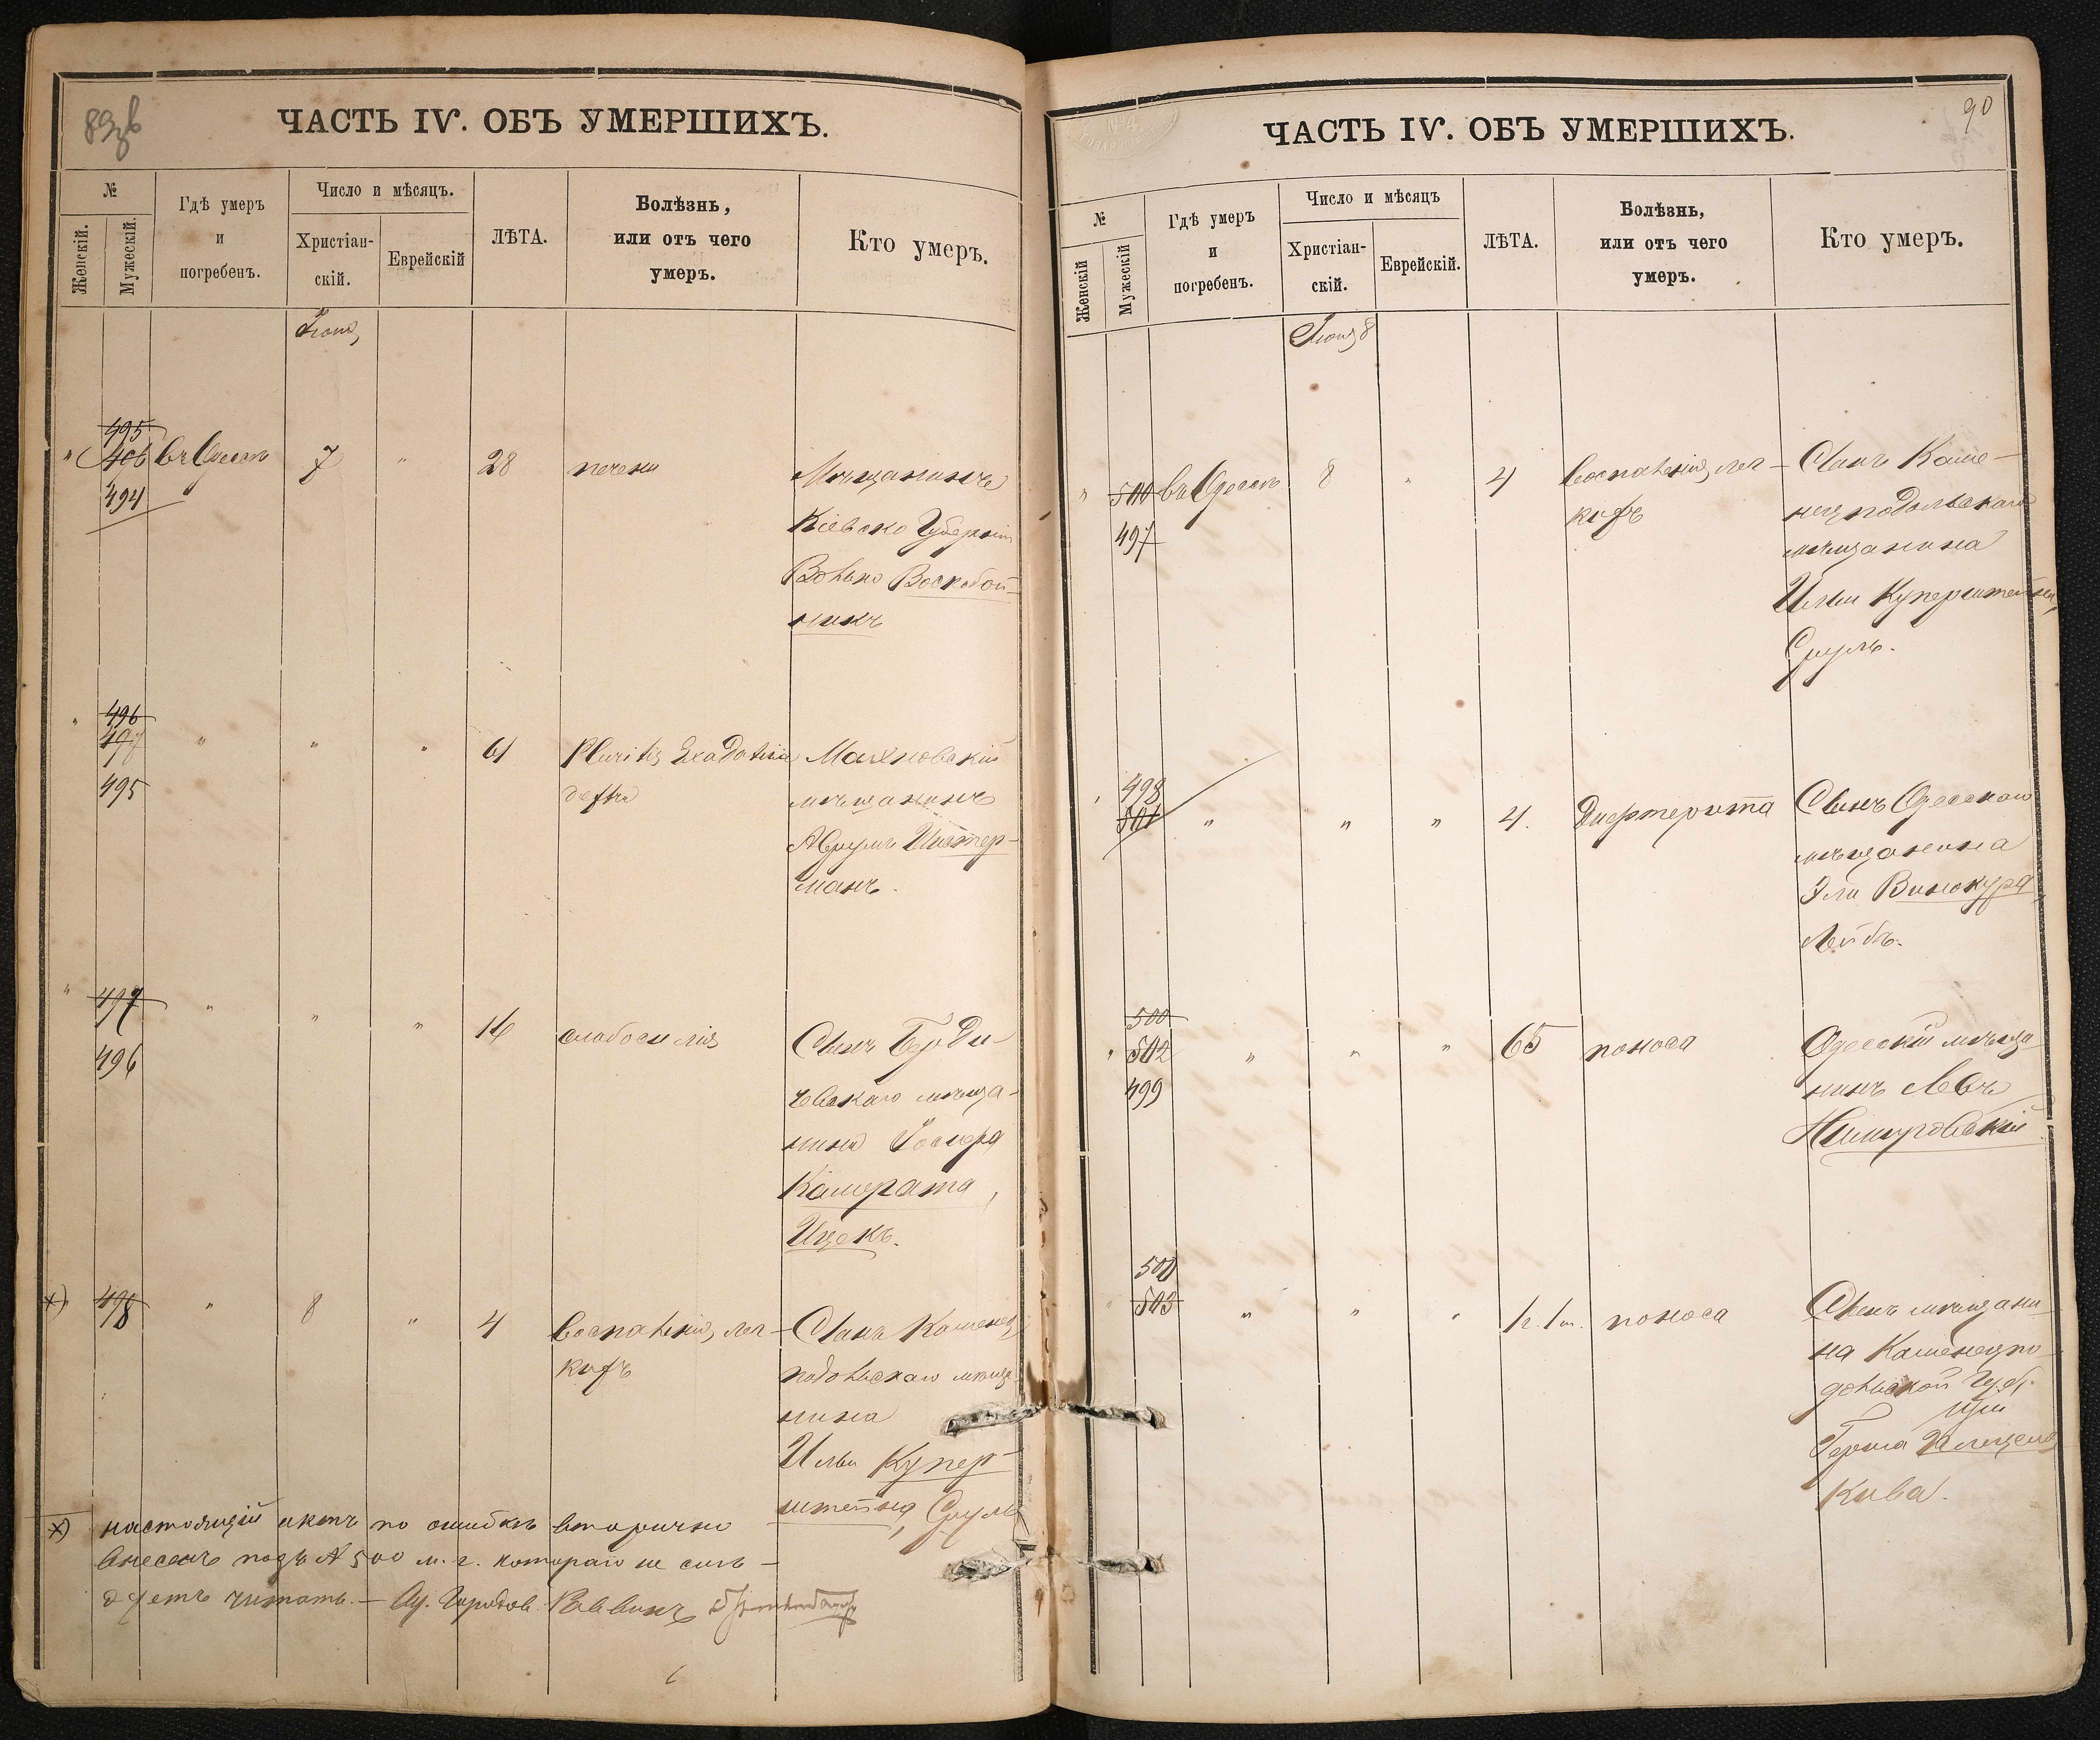 89 об
ЧАСТЬ IV. ОБЪ УМЕРШИХЪ.
№
Женскій.
Мужескій.
Гдѣ умеръ
и
погребенъ.
Число и мѣсяцъ.
Христіан-
скій.
Еврейскій
ЛѢТА.
Болѣзнь,
или отъ чего
умеръ.
Кто умеръ.
Іюня
495
" 496 въ Одессѣ 7 " 28 печени Мѣщанинъ
494
Кіевско Губерніи
Волько Воскобой-
никъ
496
" 497 " " " 61 Pluritis Махновскій
495
мѣщанинъ
Аврумъ
манъ.
" 497 " " " 16 слабосилія Сынъ Берди-
496
чевскаго мѣща-
нина
Камерата,
Ицекъ.
х) 498 " 8 " 4 Воспаленія лег- Сынъ Каменец
кихъ
подольскаго мѣща
нина
Ильи Купер-
штейна, Сруль
х) настоящій актъ по ошибкѣ вторично
внесенъ подъ № 500 м. г. котораго не слѣ-
дуетъ читать. — Городов. Раввинъ
90
ЧАСТЬ IV. ОБЪ УМЕРШИХЪ.
№
Женскій
Мужескій
Гдѣ умеръ
и
погребенъ.
Число и мѣсяцъ
Христіан-
скій.
Еврейскій.
ЛѢТА.
Болѣзнь,
или отъ чего
умеръ.
Кто умеръ.
Іюня 8
" 500 въ Одессѣ 8 " 4 Воспаленія лег- Сынъ Каме-
497
кихъ
нецподольскаго
мѣщанина
Ильи Куперштейна,
Сруль.
498
" 501 " " " 4. Дифтерита Сынъ Одесскаго
мѣщанина
Эли Винокура,
Лейбъ.
500
" 502 " " " 65 поноса Одесскій мѣща
499
нинъ Лейбъ
Нимировскій
500
" 503 " " " 1 г. 1 м. поноса Сынъ мѣщани
на Каменецпо
дольской Губ.
Герша
Кива.